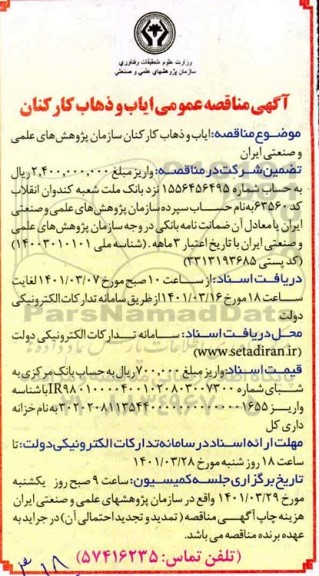 وزارت علوم تحقیقات وفناوری
سازمان پژوهشهای علمی و صنعتی
آگهی مناقصه عمومی ایاب و ذهاب کارکنان
موضوع مناقصه: ایاب و ذهاب کارکنان سازمان پژوهش‌های علمی
و صنعتی ایران
تضمین شرکت در مناقصه: واریز مبلغ ۲,۴۰۰,۰۰۰,۰۰۰ ریال
به حساب شماره ۱۵۵۶۴۵۶۴۹۵ نزد بانک ملت شعبه کندوان انقلاب
کد ۶۳۵۶۰ به‌نام حساب سپرده سازمان پژوهش های علمی و صنعتی
ایران یا معادل آن ضمانت نامه بانکی در وجه سازمان پژوهش های علمی
و صنعتی ایران با تاریخ اعتبار ۳ ماهه. (شناسه ملی ۱۴۰۰۳۰۱۰۱۰۱)
(کد پستی ۳۳۱۳۱۹۳۶۸۵)
دریافت اسناد: از ساعت ۱۰ صبح مورخ ۱۴۰۱/۰۳/۰۷ لغایت
ساعت ۱۸ مورخ ۱۴۰۱/۰۳/۱۶ از طریق سامانه تدارکات الکترونیکی
دولت
محل دریافت اسناد: سامانه تدارکات الکترونیکی دولت
(www.setadiran.ir)
قیمت اسناد: واریز مبلغ ۷۰۰,۰۰۰ ریال به حساب بانک مرکزی به
شبای شماره IR۹۸۰۱۰۰۰۰۴۰۰۱۰۲۰۸۰۳۰۰۷۳۰۰ با شناسه
به نام خزانه
داری کل
مهلت ارائه اسناد در سامانه تدارکات الکترونیکی دولت: تا
ساعت ۱۸ روز شنبه مورخ ۱۴۰۱/۰۳/۲۸
تاریخ برگزاری جلسه کمیسیون: ساعت ۹ صبح روز یکشنبه
مورخ ۱۴۰۱/۰۳/۲۹ واقع در سازمان پژوهشهای علمی و صنعتی ایران
هزینه چاپ آگهی مناقصه (تمدید و تجدید احتمالی آن) در جراید به
عهده برنده مناقصه می باشد.
(تلفن تماس: ۵۷۴۱۶۲۳۵)
ParsNamadData